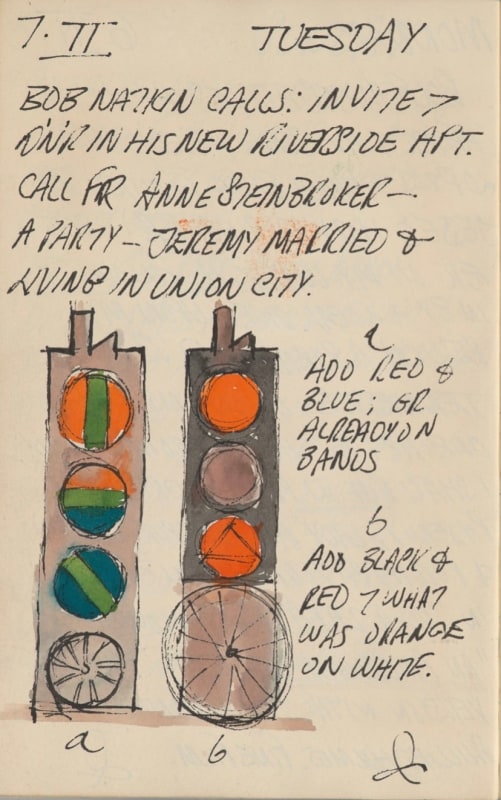 7. II TUESDAY
BOB NATKIN CALLS: INVITE >
D'N'R IN HIS NEW RIVERSIDE APT.
CALL FR ANNE STEINBROKER —
A PARTY — JEREMY MARRIED &
LIVING IN UNION CITY.
a
ADD RED &
BLUE; GR
ALREADY ON
BANDS
b
ADD BLACK &
RED > WHAT
WAS ORANGE
ON WHITE.
a
b